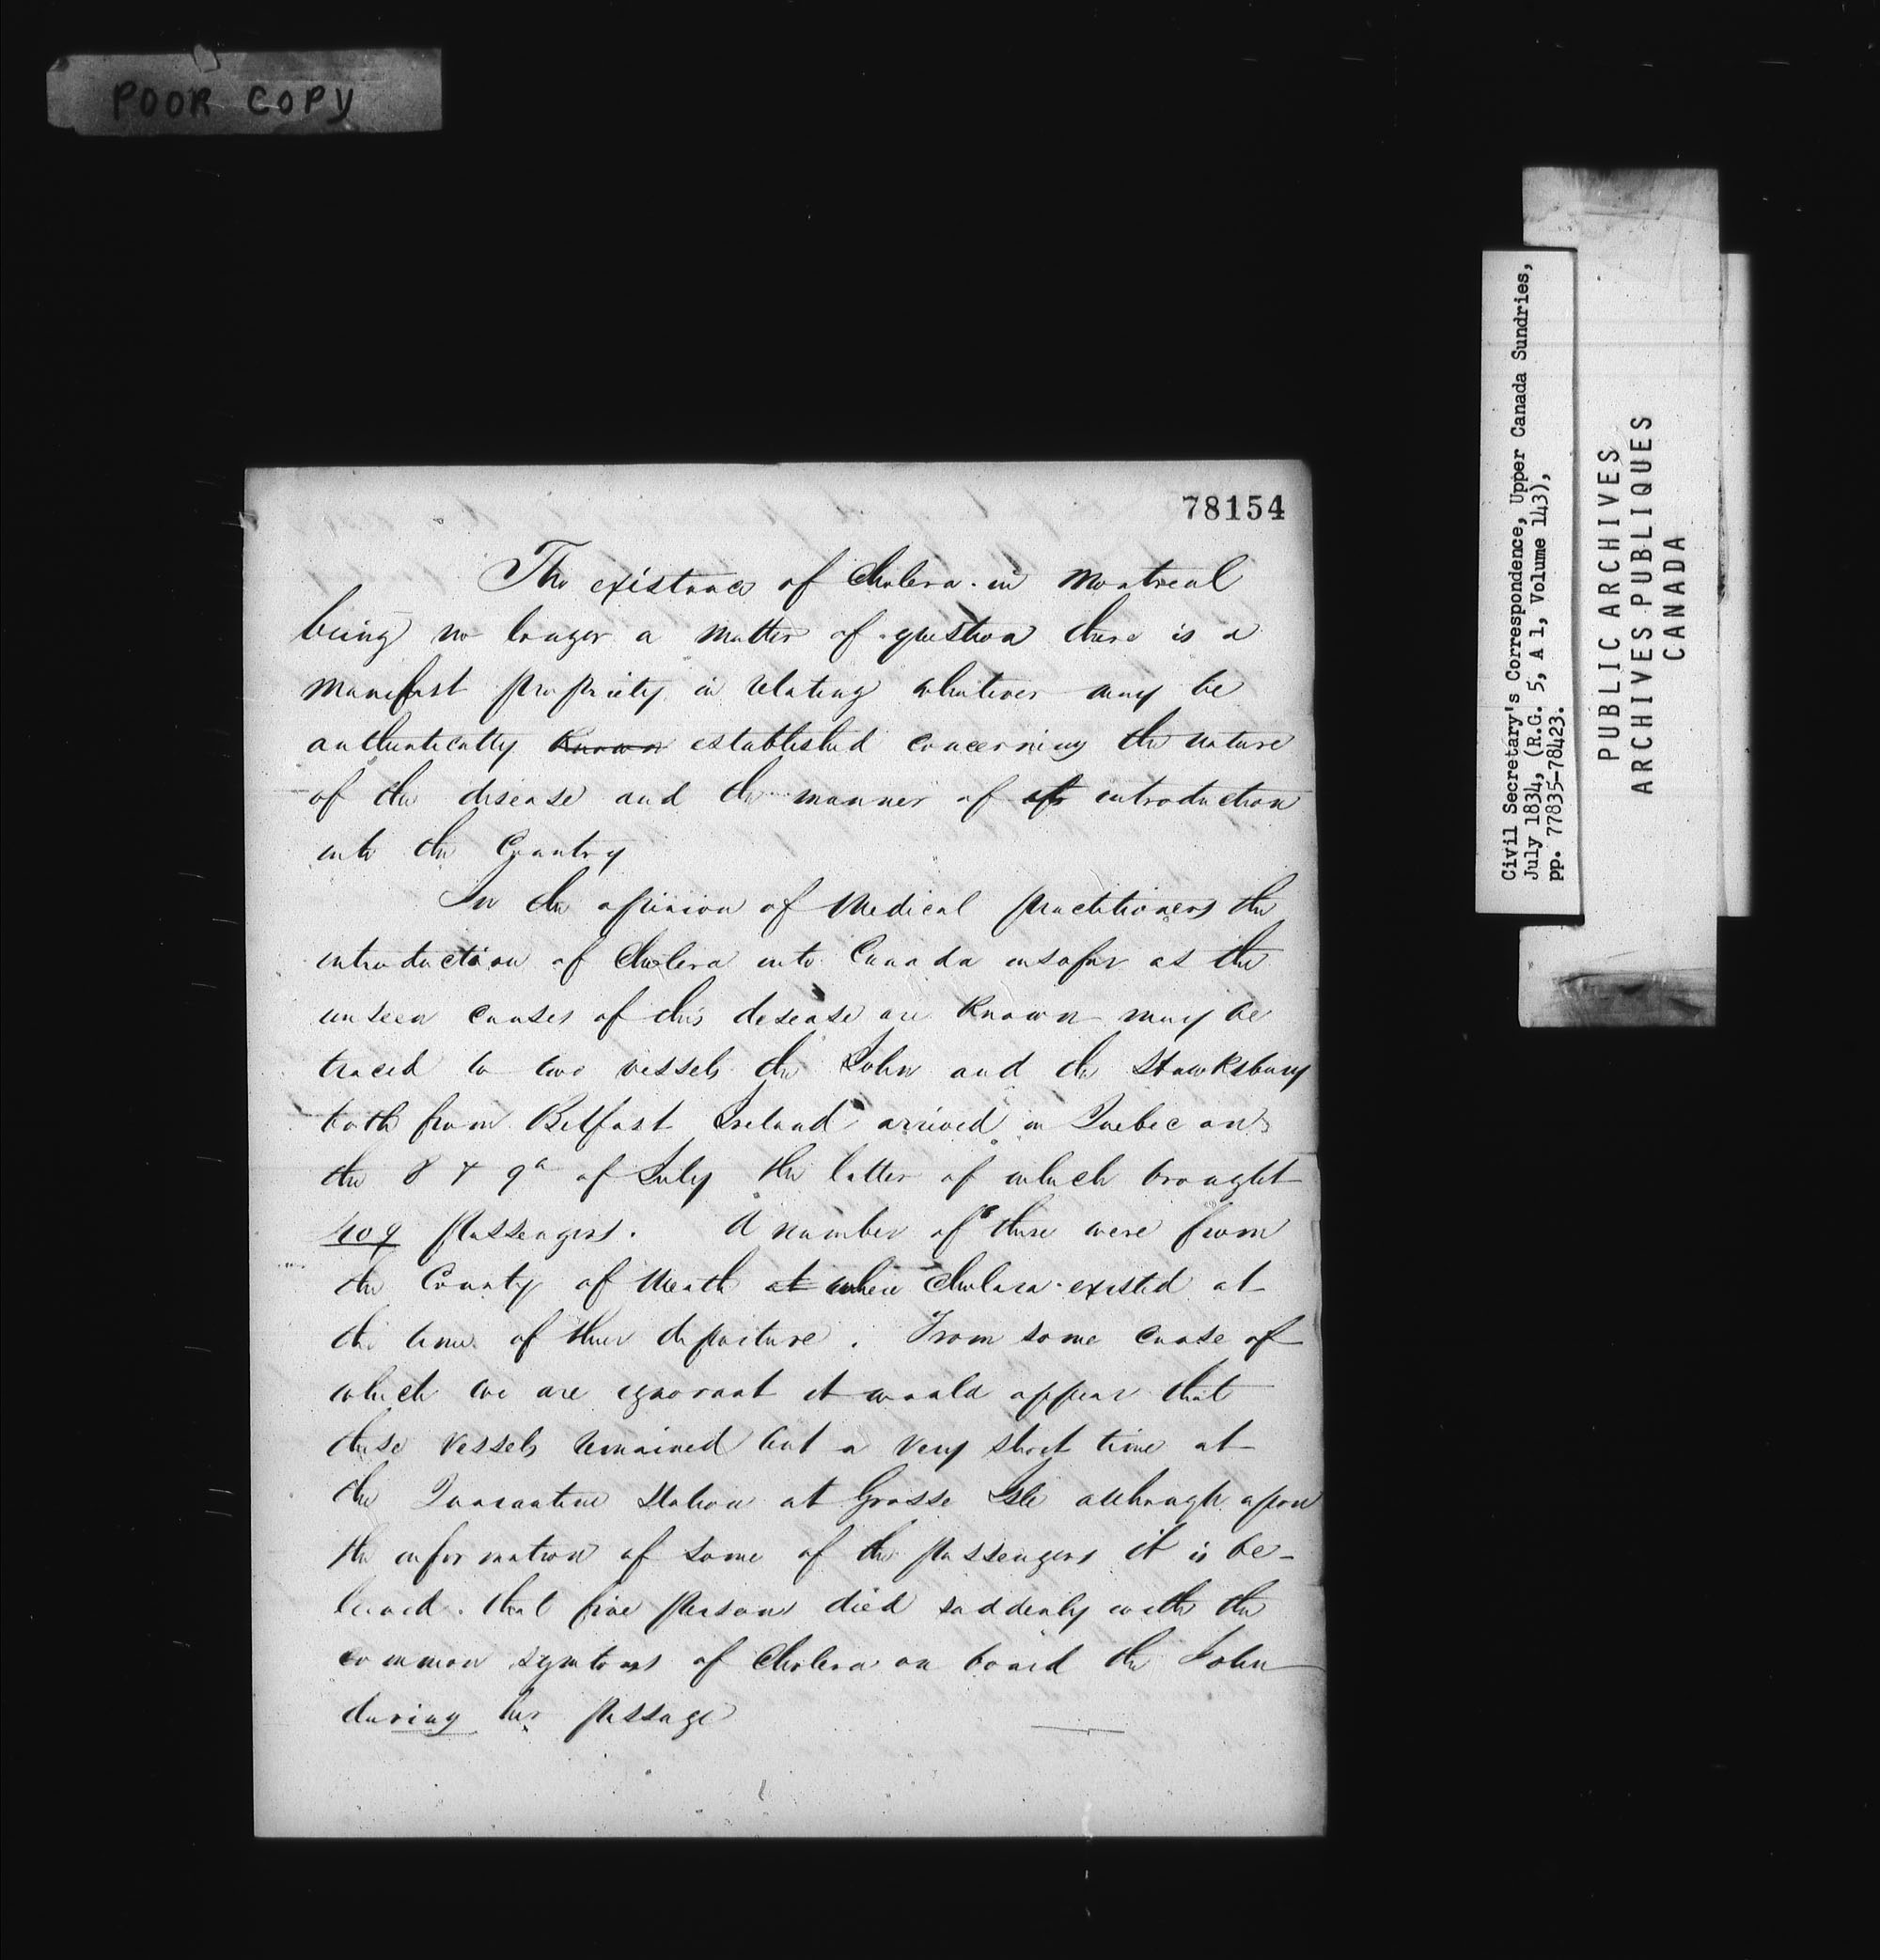 POOR COPY
78154
The existance of Cholera in Montreal
being no longer a matter of question there is a
manifest propriety in relating whatever may be
authentically Known established concerning the nature
of the disease and the manner of its introduction
into the Country
In the opinion of Medical practitioners the
introduction of Cholera into Canada insofar as the
unseen causes of this desease are Known may be
traced to two vessels the John and the Stawksbury
both from Belfast Ireland arrived in Quebec on
the 8 & 9th of July the latter of which brought
409 passengers. A number of these were from
the County of Meath at where Cholera existed at
the time of their departure. From some cause of
which we are ignorant it would appear that
these vessels remained but a very short time at
the Quarantine Station at Grosse Isle although upon
the information of some of the passengers it is be-
leived that five persons died suddenly with the
common symtoms of Cholera on board the John
during her passage
Civil Secretary's Correspondence, Upper Canada Sundries,
July 1834, (R.G. 5, A 1, Volume 143),
pp. 77835-78423.
PUBLIC ARCHIVES
ARCHIVES PUBLIQUES
CANADA